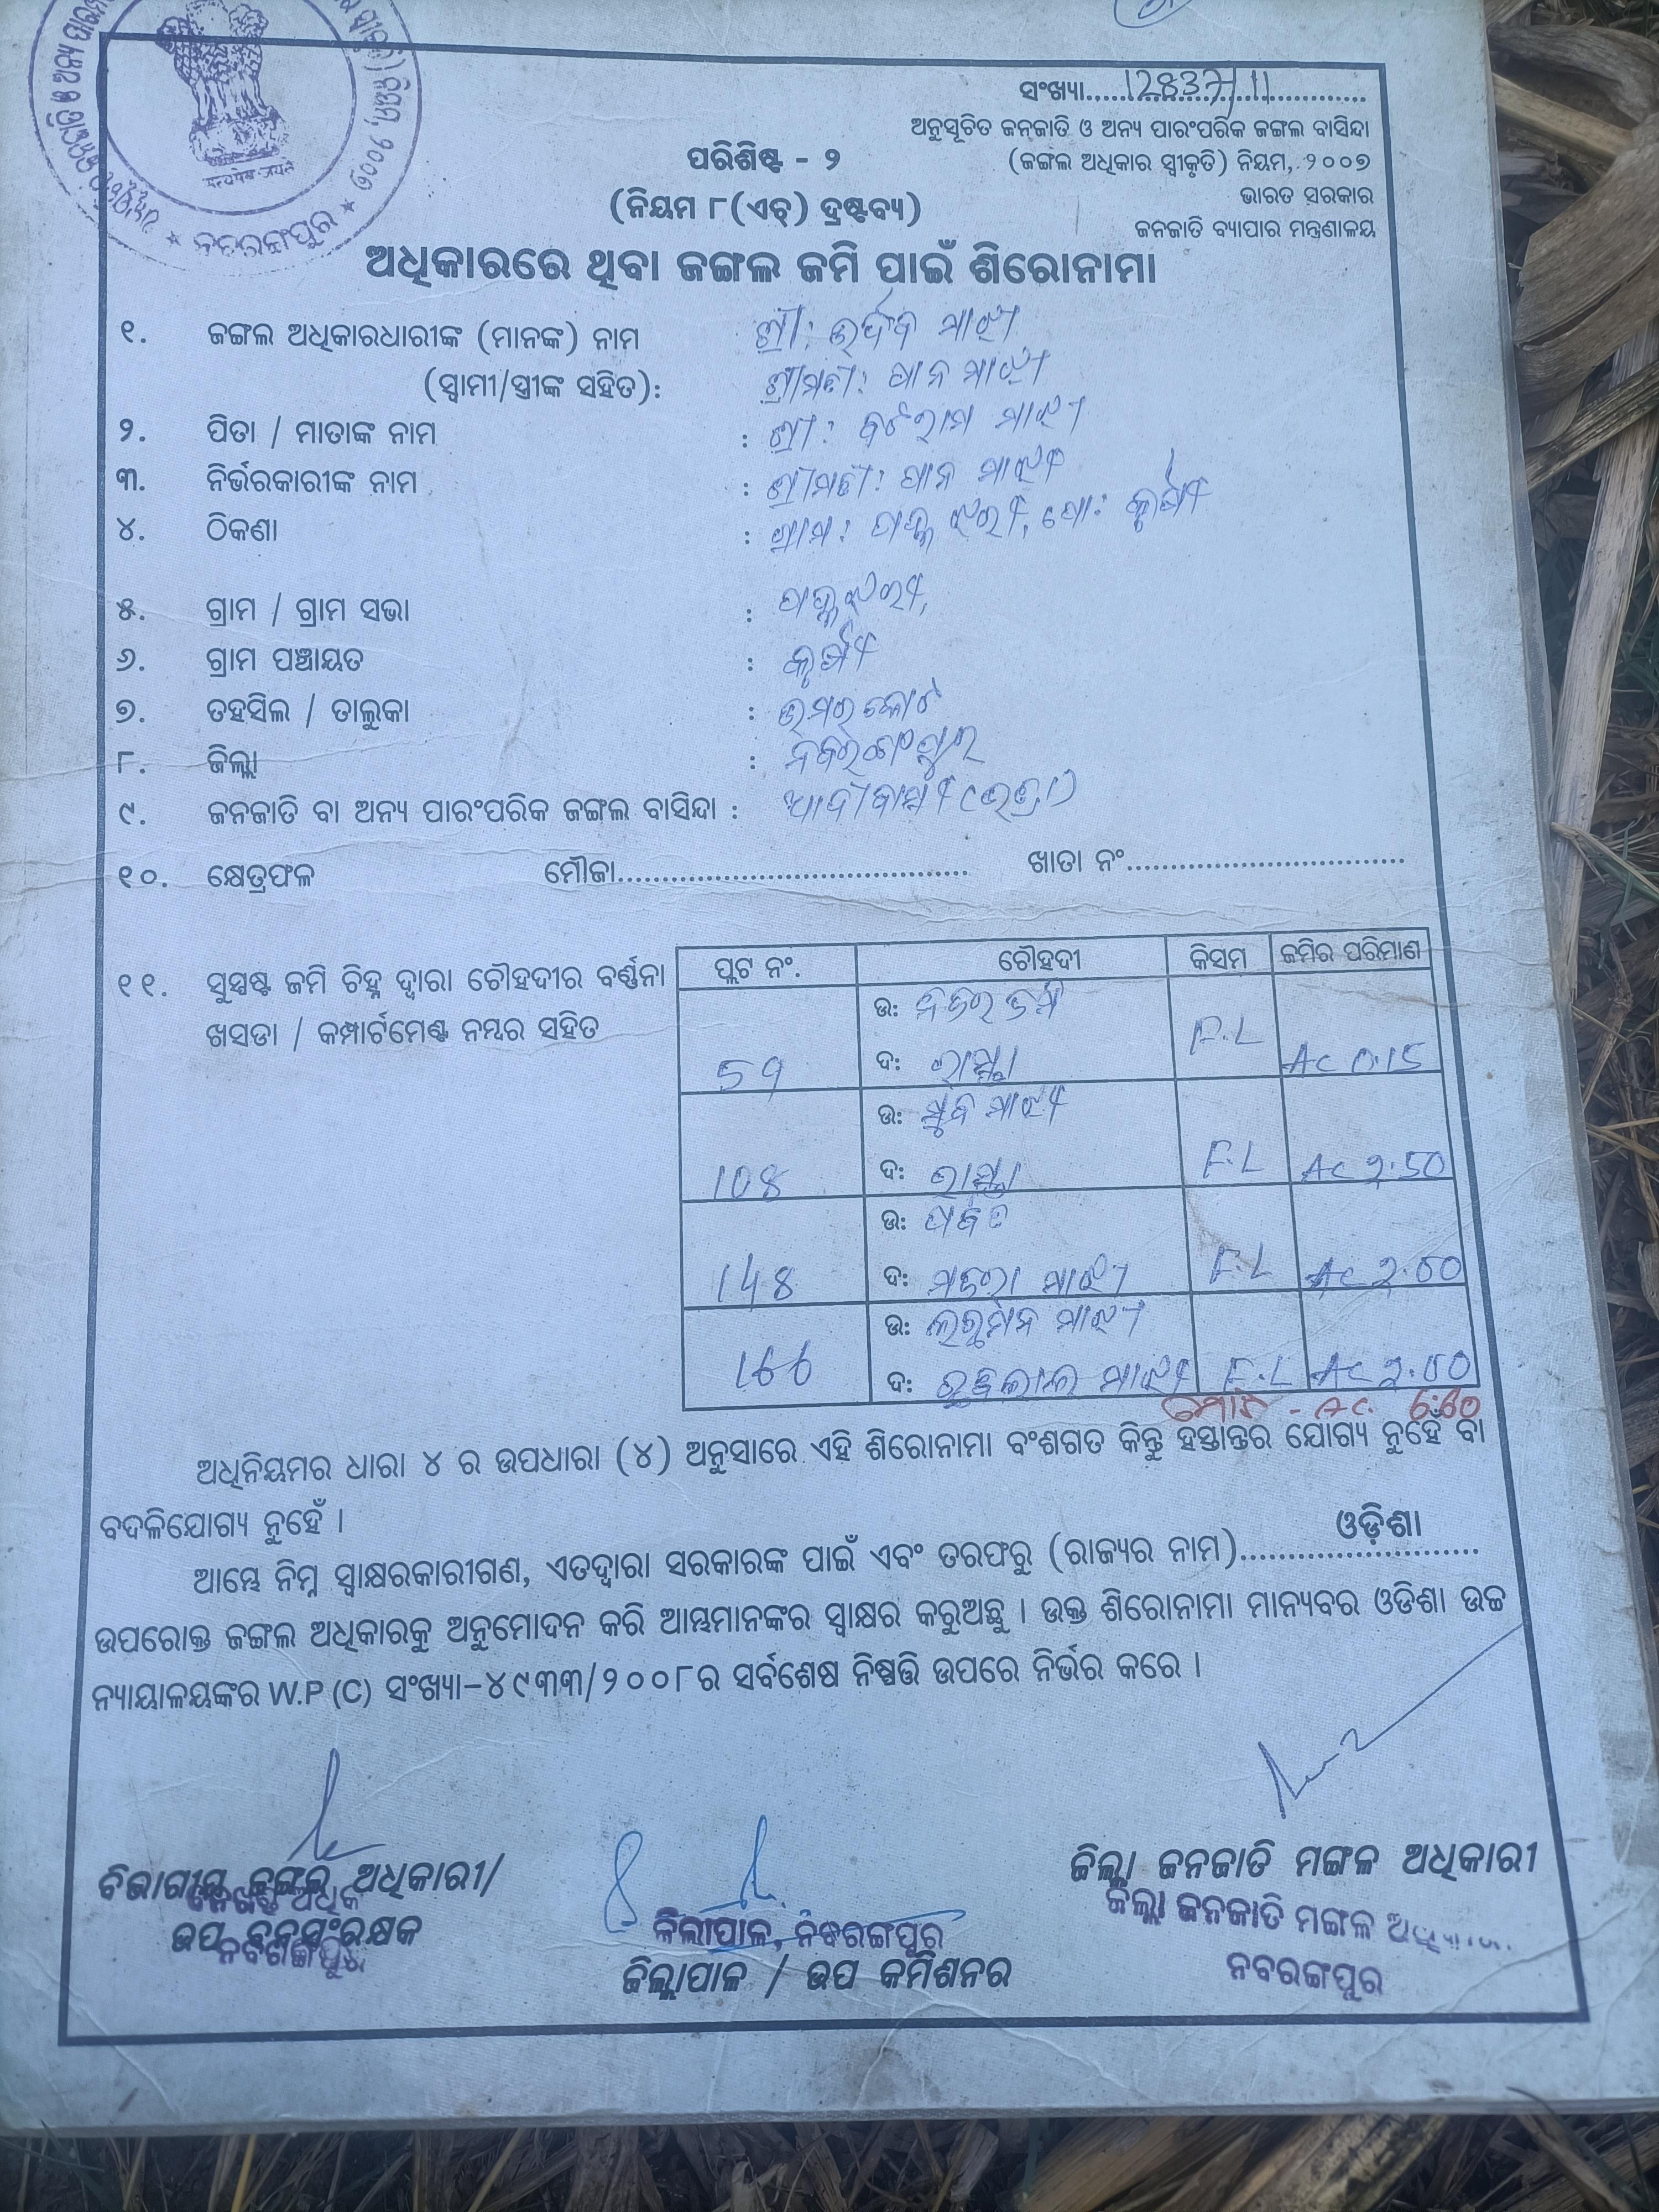 ସଂଖ୍ୟା....12837/11
ଅନୁସୂଚିତ ଜନଜାତି ଓ ଅନ୍ୟ ପାରଂପରିକ ଜଙ୍ଗଲ ବାସିନ୍ଦା
(ଜଙ୍ଗଲ ଅଧିକାର ସ୍ୱୀକୃତି) ନିୟମ, ୨୦୦୭
ଭାରତ ସରକାର
ଜନଜାତି ବ୍ୟାପାର ମନ୍ତ୍ରଣାଳୟ
ପରିଶିଷ୍ଟ - ୨
(ନିୟମ ୮(ଏଚ୍) ଦ୍ରଷ୍ଟବ୍ୟ)
ନବରଙ୍ଗପୁର
ଅଧିକାରରେ ଥିବା ଜଙ୍ଗଲ ଜମି ପାଇଁ ଶିରୋନାମା
୧. ଜଙ୍ଗଲ ଅଧିକାରଧାରୀଙ୍କ (ମାନଙ୍କ) ନାମ ଶ୍ରୀ: ଉର୍ଦ୍ଧବ ମାଝୀ
(ସ୍ୱାମୀ/ସ୍ତ୍ରୀଙ୍କ ସହିତ): ଶ୍ରୀମତୀ: ପାନ ମାଝୀ
୨. ପିତା / ମାତାଙ୍କ ନାମ : ଶ୍ରୀ: ମାଝୀ
୩. ନିର୍ଭରକାରୀଙ୍କ ନାମ : ଶ୍ରୀମତୀ: ପାନ ମାଝୀ
୪. ଠିକଣା : ଗ୍ରାମ: ପୋ:
୫. ଗ୍ରାମ / ଗ୍ରାମ ସଭା :
୬. ଗ୍ରାମ ପଞ୍ଚାୟତ :
୭. ତହସିଲ / ତାଲୁକା : ଉମରକୋଟ
୮. ଜିଲ୍ଲା : ନବରଂଗପୁର
୯. ଜନଜାତି ବା ଅନ୍ୟ ପାରଂପରିକ ଜଙ୍ଗଲ ବାସିନ୍ଦା : ଆଦୀବାସୀ
୧୦. କ୍ଷେତ୍ରଫଳ ମୌଜା........ ଖାତା ନଂ........
୧୧. ସୁସ୍ପଷ୍ଟ ଜମି ଚିହ୍ନ ଦ୍ୱାରା ଚୌହଦୀର ବର୍ଣ୍ଣନା
ଖସଡା / କମ୍ପାର୍ଟମେଣ୍ଟ ନମ୍ବର ସହିତ
ପ୍ଲଟ ନଂ. ଚୌହଦୀ କିସମ ଜମିର ପରିମାଣ
ଉ:
59 ଦ: ରାସ୍ତା F.L AC 0.15
ଉ: ମାଝୀ
108 ଦ: ରାସ୍ତା F.L AC 2.50
ଉ: ପର୍ବତ
148 ଦ: ମାଝୀ F.L
ଉ: ଲଛମନ ମାଝୀ
166 ଦ: ମାଝୀ F.L
ମୋଟ - AC.
ଅଧିନିୟମର ଧାରା ୪ ର ଉପଧାରା (୪) ଅନୁସାରେ ଏହି ଶିରୋନାମା ବଂଶଗତ କିନ୍ତୁ ହସ୍ତାନ୍ତର ଯୋଗ୍ୟ ନୁହେଁ ବା
ବଦଳିଯୋଗ୍ୟ ନୁହେଁ ।
ଆମ୍ଭେ ନିମ୍ନ ସ୍ୱାକ୍ଷରକାରୀଗଣ, ଏତଦ୍ୱାରା ସରକାରଙ୍କ ପାଇଁ ଏବଂ ତରଫରୁ (ରାଜ୍ୟର ନାମ)....ଓଡ଼ିଶା....
ଉପରୋକ୍ତ ଜଙ୍ଗଲ ଅଧିକାରକୁ ଅନୁମୋଦନ କରି ଆମ୍ଭମାନଙ୍କର ସ୍ୱାକ୍ଷର କରୁଅଛୁ । ଉକ୍ତ ଶିରୋନାମା ମାନ୍ୟବର ଓଡିଶା ଉଚ୍ଚ
ନ୍ୟାୟାଳୟଙ୍କର W.P (C) ସଂଖ୍ୟା-୪୯୩୩/୨୦୦୮ର ସର୍ବଶେଷ ନିଷ୍ପତ୍ତି ଉପରେ ନିର୍ଭର କରେ ।
ବିଭାଗୀୟ ଜଙ୍ଗଲ ଅଧିକାରୀ/
ଉପ ବନସଂରକ୍ଷକ
ନବରଙ୍ଗପୁର
ଜିଲ୍ଲାପାଳ, ନବରଙ୍ଗପୁର
ଜିଲ୍ଲାପାଳ / ଉପ କମିଶନର
ଜିଲ୍ଲା ଜନଜାତି ମଙ୍ଗଳ ଅଧିକାରୀ
ଜିଲ୍ଲା ଜନଜାତି ମଙ୍ଗଳ
ନବରଙ୍ଗପୁର